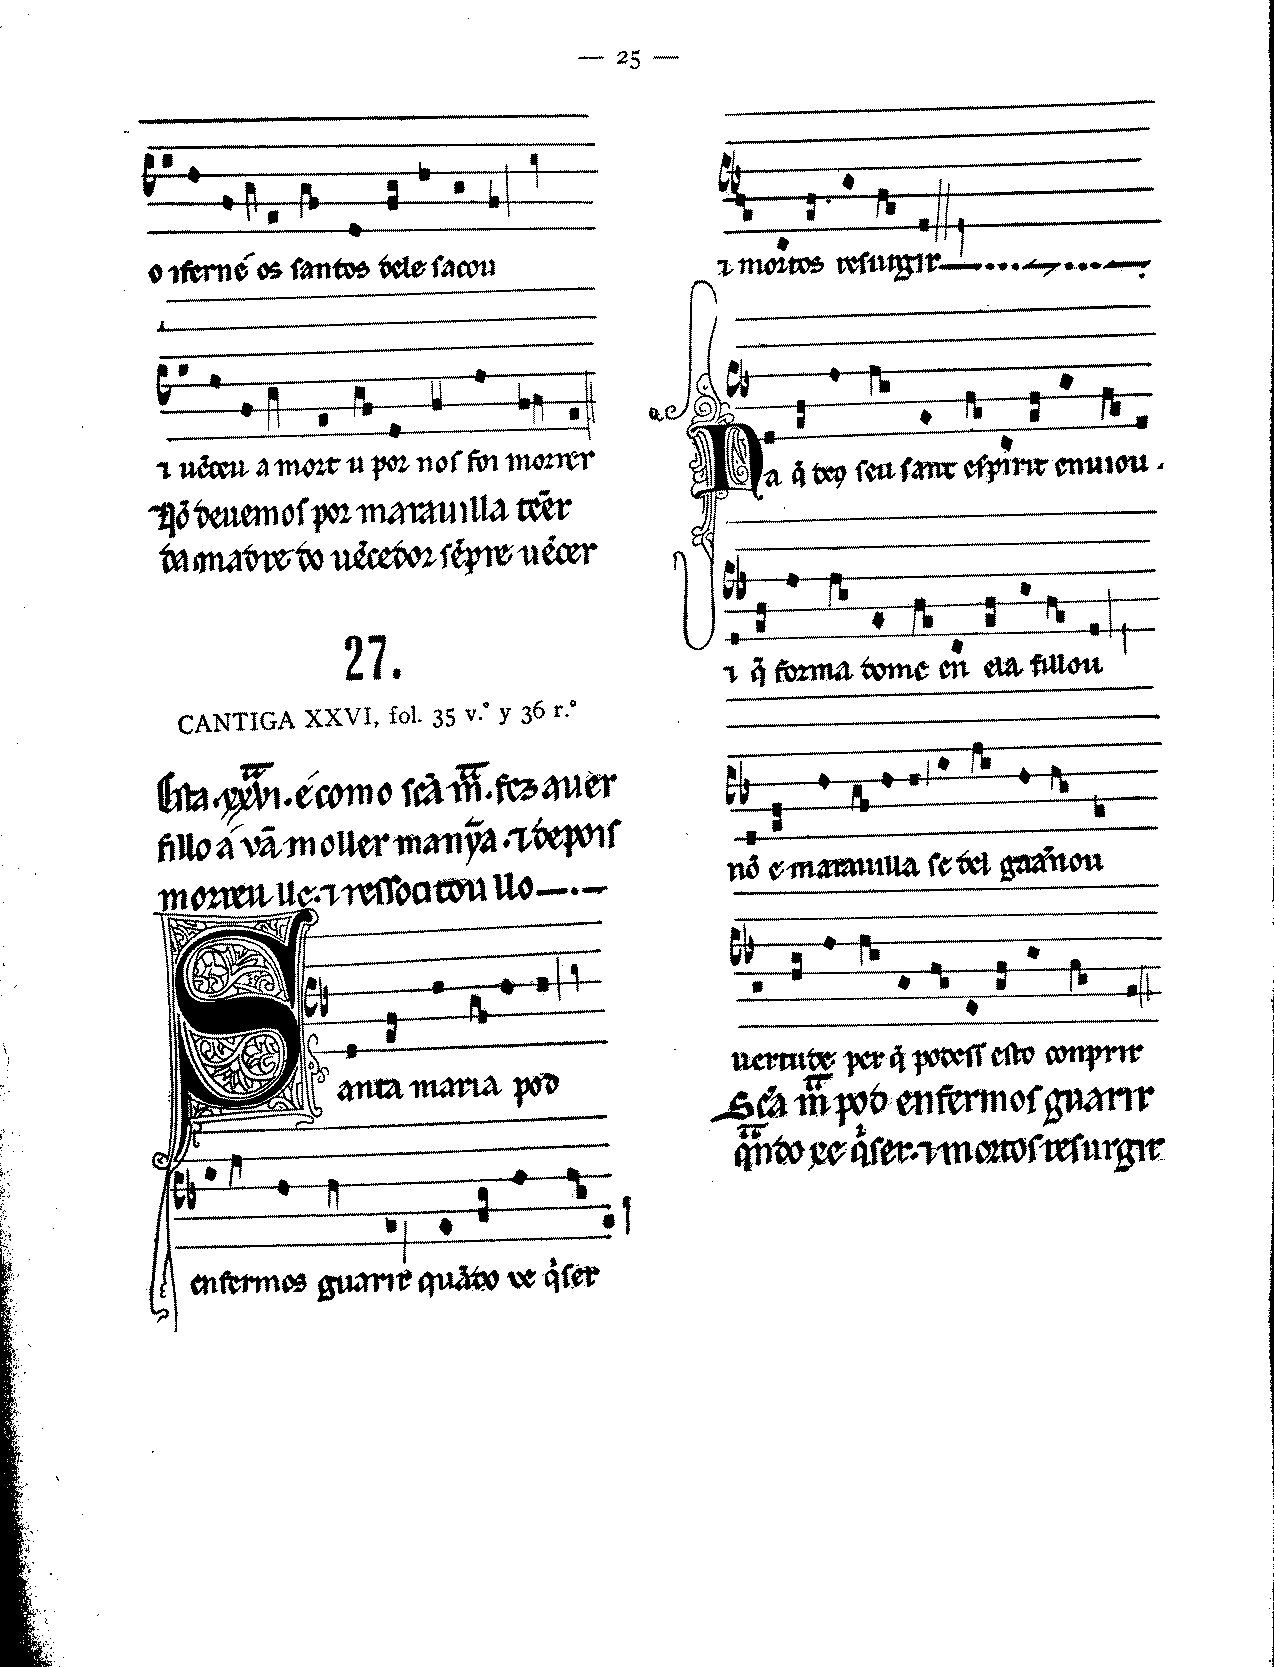 — 25 —
o ıferné os santos dele sacou
⁊ uēceu a mort u por nos foi morrer
Nō deuemos por marauilla tēer
da madre do uēcedor sēpre uēcer
27.
CANTIGA XXVI, fol. 35 v.º y 36 r.º
Esta .xxvi. é como scā m̄. fez auer
fillo a vā moller manỹa. ⁊ depois
morreu lle. ⁊ ressocitou llo
Santa maria pod
enfermos guarir quādo xe q̇ser
⁊ mortos resurgir
Na q̄ deꝯ seu sant espirit enuiou.
⁊ q̄ forma dome en ela fillou
nō e marauilla se del gaānou
uertude per q̄ podess esto conprir
Scā m̄ pod enfermos guarir
q̄ndo xe q̇ser. ⁊ mortos resurgir